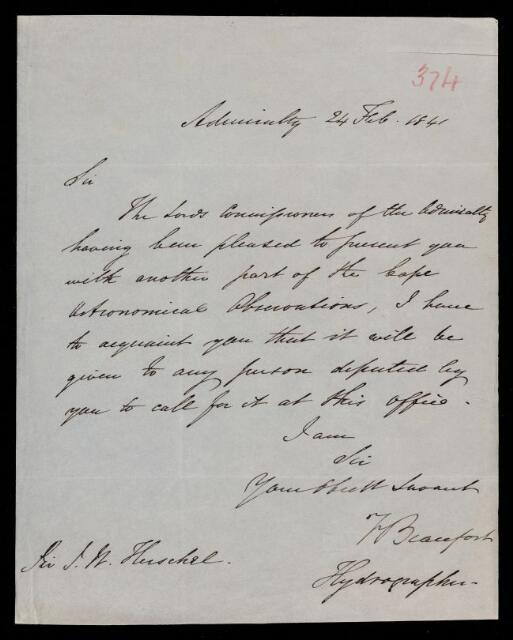 374
Admiralty 24 Feb. 1841
Sir
The Lords Commissioners of the Admiralty
having been pleased to present you
with another part of the Cape
Astronomical Observations, I have
to acquaint you that it will be
given to any person deputed by
you to call for it at this office.
I am
Sir
Your Obedt Servant
F Beaufort
Sir J. W. Herschel.
Hydrographer